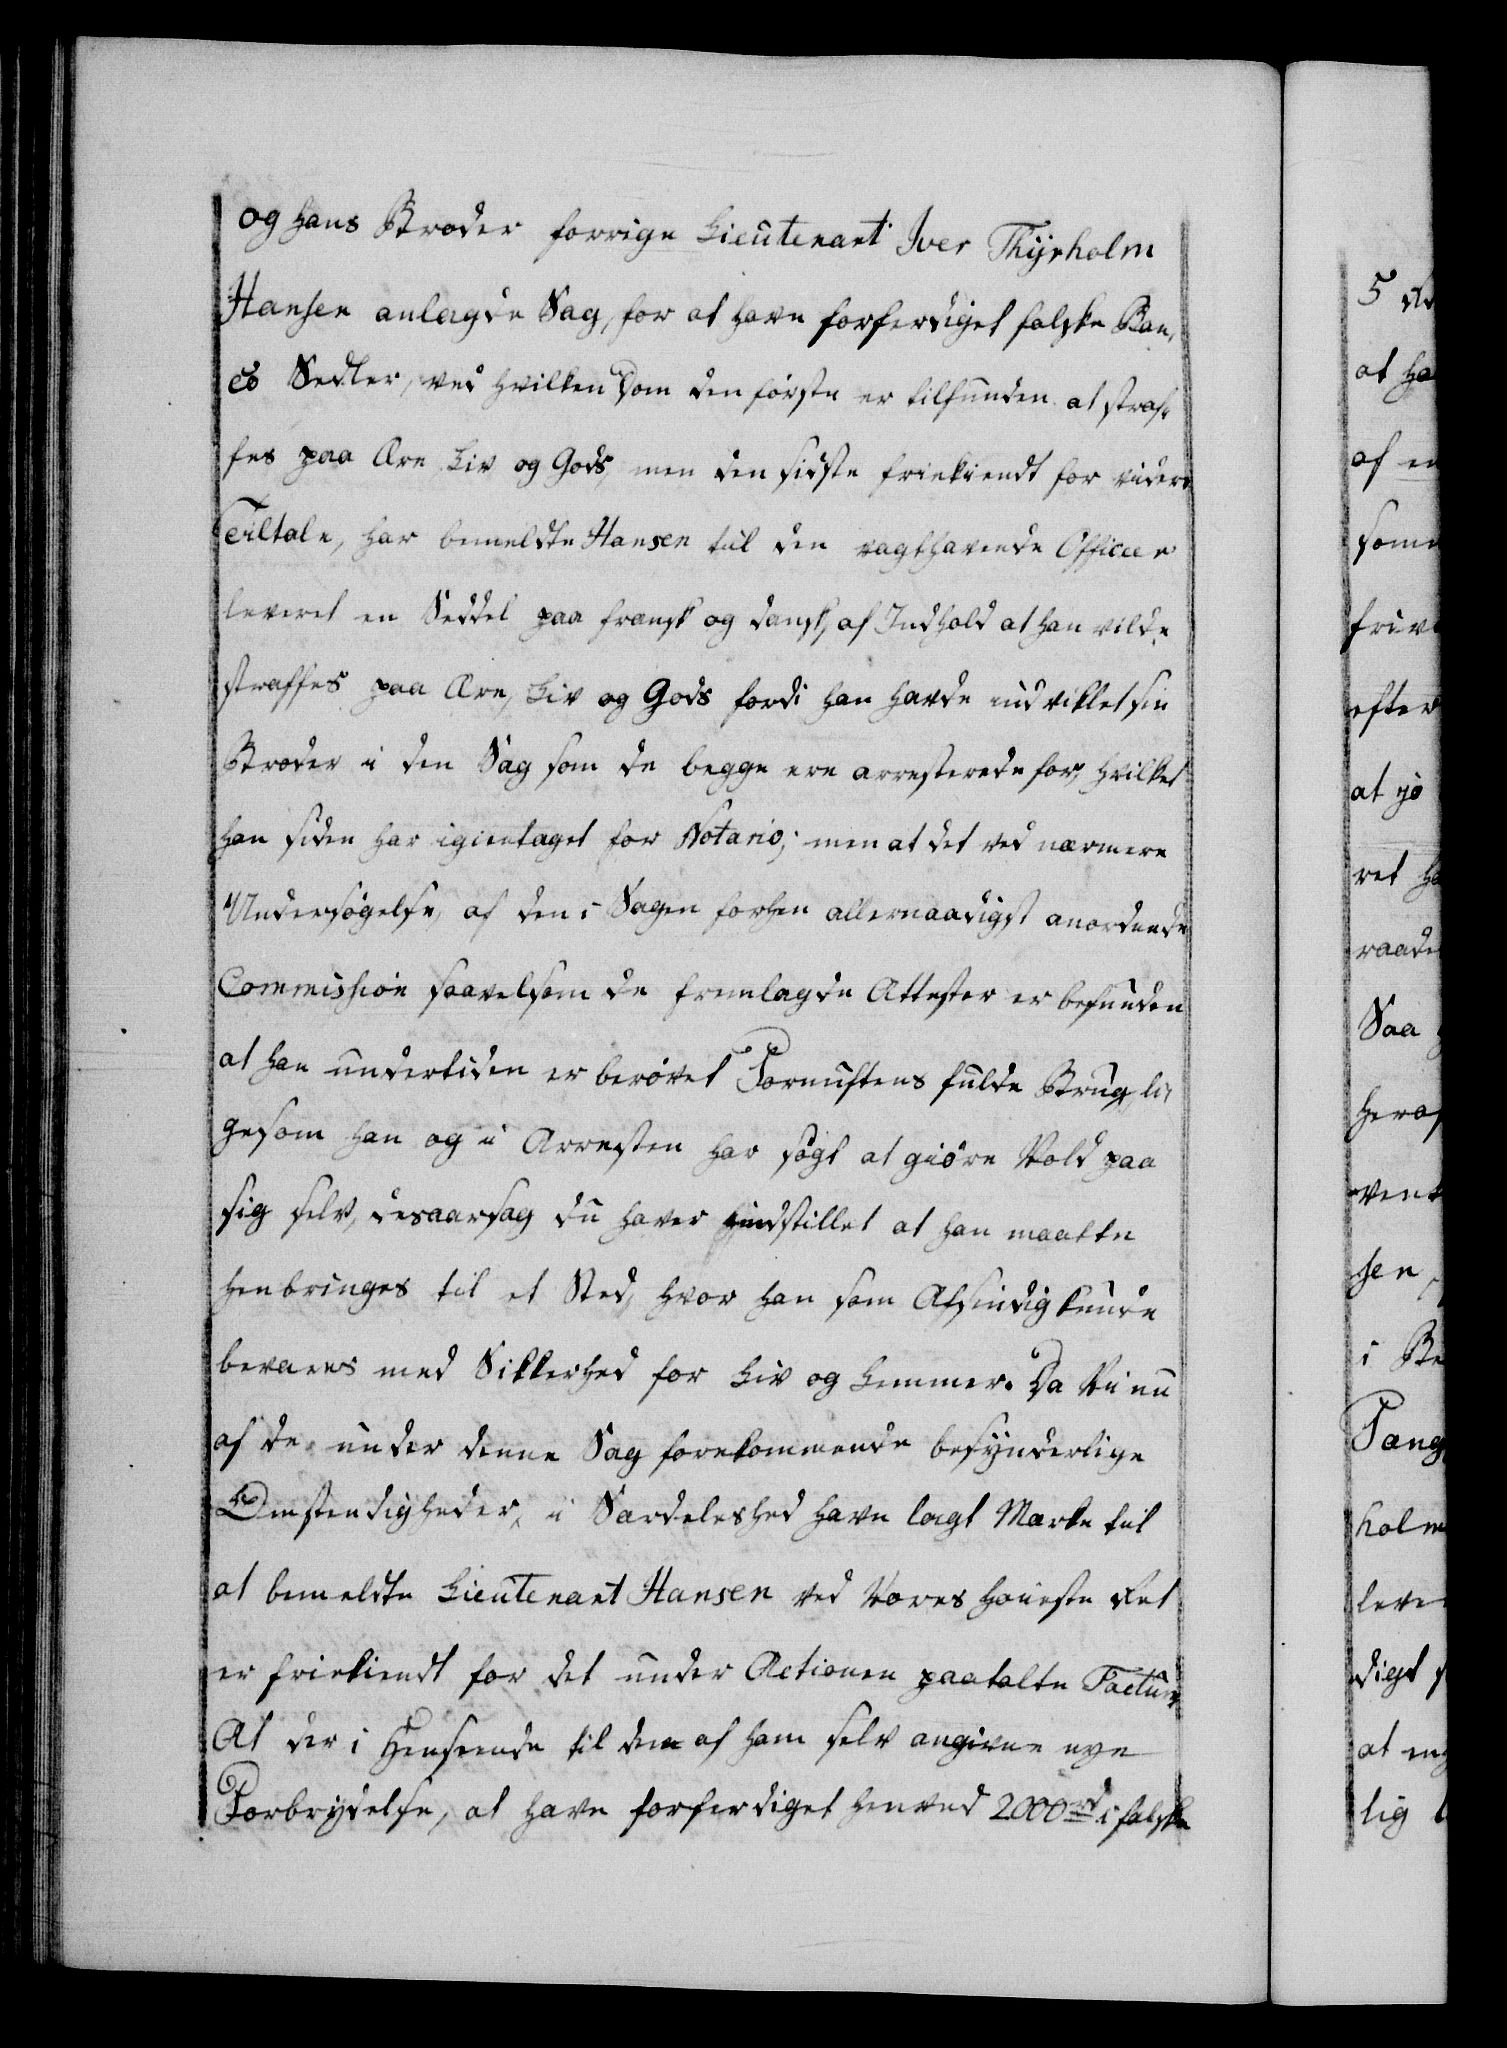 og hans Broder forrige Lieutenant Iver Thyrholm
Hansen anlagde Sag, for at have forferdiget falske Ban,
co Sedler, ved hvilken Dom den første er tilfunden at straf,
fes paa Ære Liv og Gods, men den sidste friekiendt for videre
Tiltale, har bemeldte Hansen til den vagthavende Officeer
leveret en Seddel paa fransk og dansk, af Indhold at han vilde
straffes paa Ære, Liv og Gods fordi han havde indviklet sin
Broder i den Sag som de begge ere arresterede for, hvilket
han siden har igientaget for Notario; men at det ved nærmere
Undersøgelse, af den i Sagen forhen allernaadigst anordnede
Commission saavelsom de fremlagde Attester er befunden
at han undertiden er berøvet Fornuftens fulde Brug, li,
gesom han og i Arresten har søgt at giøre Vold paa
sig selv, desaarsag du haver hindstillet at han maatte
henbringes til et Sted, hvor han som Afsindig kunde
bevares med Sikkerhed for Liv og Lemmer. Da Vi nu
af de under denne Sag forekommende besynderlige
Omstendigheder, i Særdeleshed have lagt Mærke til
at bemeldte Lieutenant Hansen ved Vores Høieste Ret
er friekiendt for det under Actionen paatalte Factum
At der i Henseende til den af ham selv angivne nye
Forbrydelse, at have forferdiget henved 2000 rd i falske
5 
at ha
af en
som
friv
efter
at jo
ret ha
raade
Saa
heraf
vent
sen,
i Be
Fæng
holm
leve
digt
at
lig